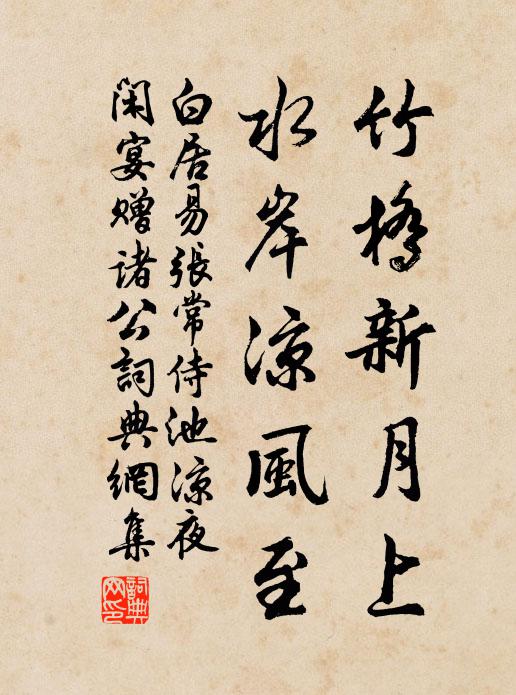 竹橋新月上
水岸涼風至
白居易張常侍池涼夜
閑宴贈諸公詞典網集
詞典
网印